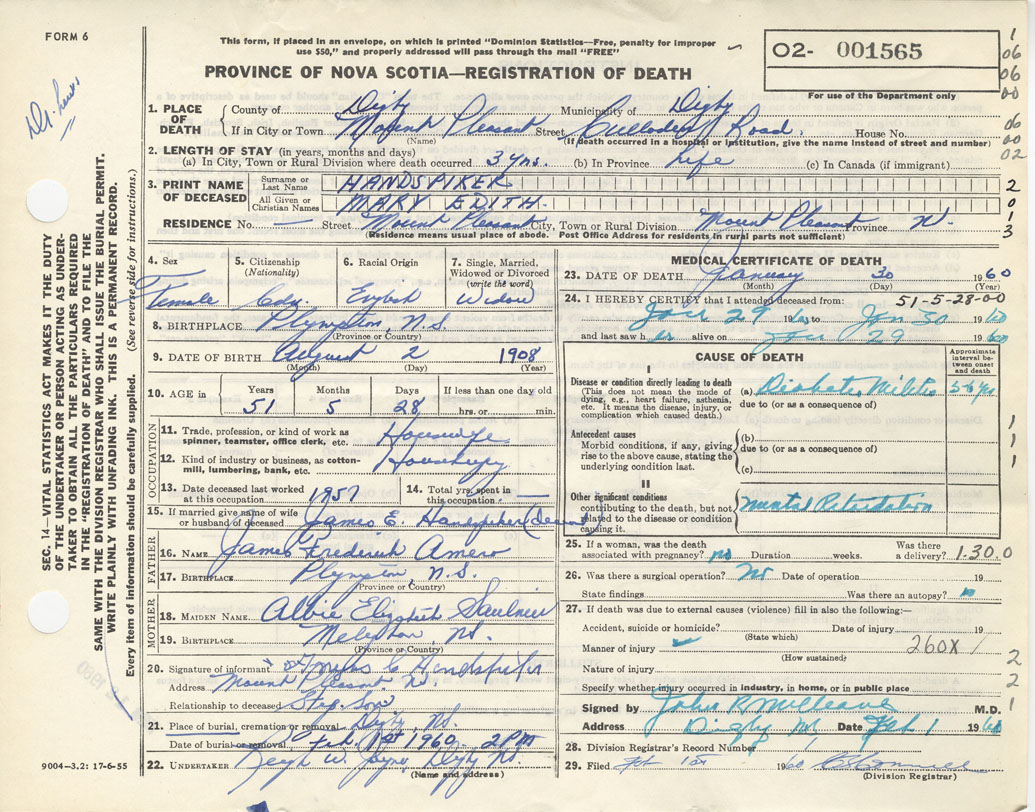 FORM 6
This form, if placed in an envelope, on which is printed "Dominion Statistics—Free, penalty for improper
use $50," and properly addressed will pass through the mail "FREE"
O2- 001565
For use of the Department only
PROVINCE OF NOVA SCOTIA—REGISTRATION OF DEATH
1 06 06 00
06 00 02
2 0 1 3
SEC. 14—VITAL STATISTICS ACT MAKES IT THE DUTY
OF THE UNDERTAKER OR PERSON ACTING AS UNDER-
TAKER TO OBTAIN ALL THE PARTICULARS REQUIRED
IN THE "REGISTRATION OF DEATH" AND TO FILE THE
SAME WITH THE DIVISION REGISTRAR WHO SHALL ISSUE THE BURIAL PERMIT.
WRITE PLAINLY WITH UNFADING INK. THIS IS A PERMANENT RECORD.
Every item of information should be carefully supplied. (See reverse side for instructions.)
1. PLACE OF DEATH { County of Digby Municipality of Digby
If in City or Town Mount Pleasant Street Culloden Road, House No.
(Name) (If death occurred in a hospital or institution, give the name instead of street and number)
2. LENGTH OF STAY (in years, months and days)
(a) In City, Town or Rural Division where death occurred 3 yrs. (b) In Province Life (c) In Canada (if immigrant)
3. PRINT NAME OF DECEASED Surname or Last Name HANDSPIKER
All Given or Christian Names MARY EDITH
RESIDENCE No. — Street Mount Pleasant City, Town or Rural Division Mount Pleasant Province N.
(Residence means usual place of abode. Post Office Address for residents in rural parts not sufficient)
4. Sex Female
5. Citizenship (Nationality) Cdn.
6. Racial Origin English
7. Single, Married, Widowed or Divorced (write the word) Widow
8. BIRTHPLACE Plympton, N.S.
(Province or Country)
9. DATE OF BIRTH August 2 1908
(Month) (Day) (Year)
10. AGE in Years 51 Months 5 Days 28 If less than one day old hrs. or min.
OCCUPATION
11. Trade, profession, or kind of work as spinner, teamster, office clerk, etc. Housewife
12. Kind of industry or business, as cotton-mill, lumbering, bank, etc.
13. Date deceased last worked at this occupation 1957
14. Total yrs. spent in this occupation —
15. If married give name of wife or husband of deceased James E. Handspiker
FATHER
16. NAME James Frederick Amero
17. BIRTHPLACE Plympton, N.S.
(Province or Country)
MOTHER
18. MAIDEN NAME Elizabeth Saulnier
19. BIRTHPLACE
(Province or Country)
20. Signature of informant Handspiker
Address Mount Pleasant N.
Relationship to deceased Step. Son
21. Place of burial, cremation or removal Digby NS.
Date of burial or removal Feb 1st 1960 2 PM
22. UNDERTAKER
(Name and address)
9004—3.2: 17-6-55
MEDICAL CERTIFICATE OF DEATH
23. DATE OF DEATH January 30 1960
(Month) (Day) (Year)
51-5-28-00
24. I HEREBY CERTIFY that I attended deceased from:
Jan 29 1960 to Jan 30 1960
and last saw her alive on Jan 29 1960
CAUSE OF DEATH
Approximate interval between onset and death
I
Disease or condition directly leading to death
(This does not mean the mode of dying, e.g., heart failure, asthenia, etc. It means the disease, injury, or complication which caused death.)
(a) Diabetes 5-6 yrs
due to (or as a consequence of)
Antecedent causes
Morbid conditions, if any, giving rise to the above cause, stating the underlying condition last.
(b)
due to (or as a consequence of)
(c)
1 1 1
II
Other significant conditions contributing to the death, but not related to the disease or condition causing it.
Mental Retardation
25. If a woman, was the death associated with pregnancy? no Duration weeks. Was there a delivery?
1.30.0
26. Was there a surgical operation? No Date of operation 19
State findings Was there an autopsy?
27. If death was due to external causes (violence) fill in also the following:—
Accident, suicide or homicide? Date of injury 19
(State which)
Manner of injury 260X
(How sustained)
Nature of injury
Specify whether injury occurred in industry, in home, or in public place
2 2 1
Signed by John R. M.D.
Address Digby Date Feb 1 1960
28. Division Registrar's Record Number
29. Filed Feb 1st 1960
(Division Registrar)